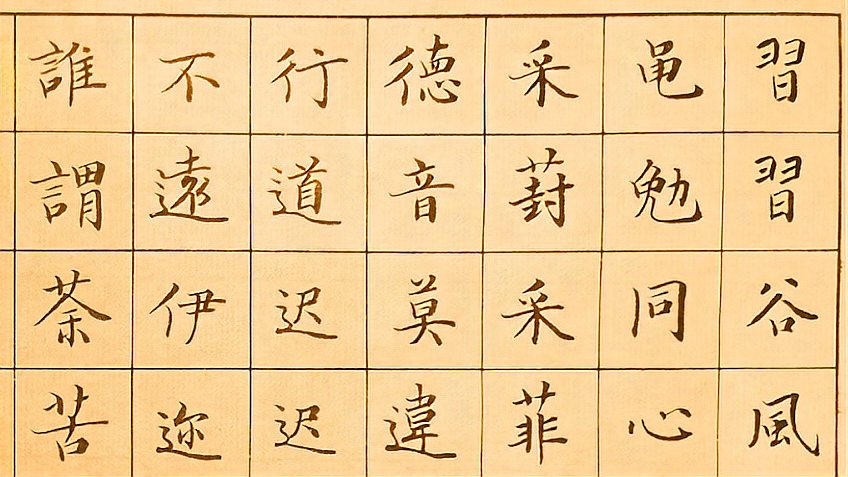 習習谷風
黾勉同心
采葑采菲
德音莫違
行道迟迟
不遠伊迩
誰謂荼苦